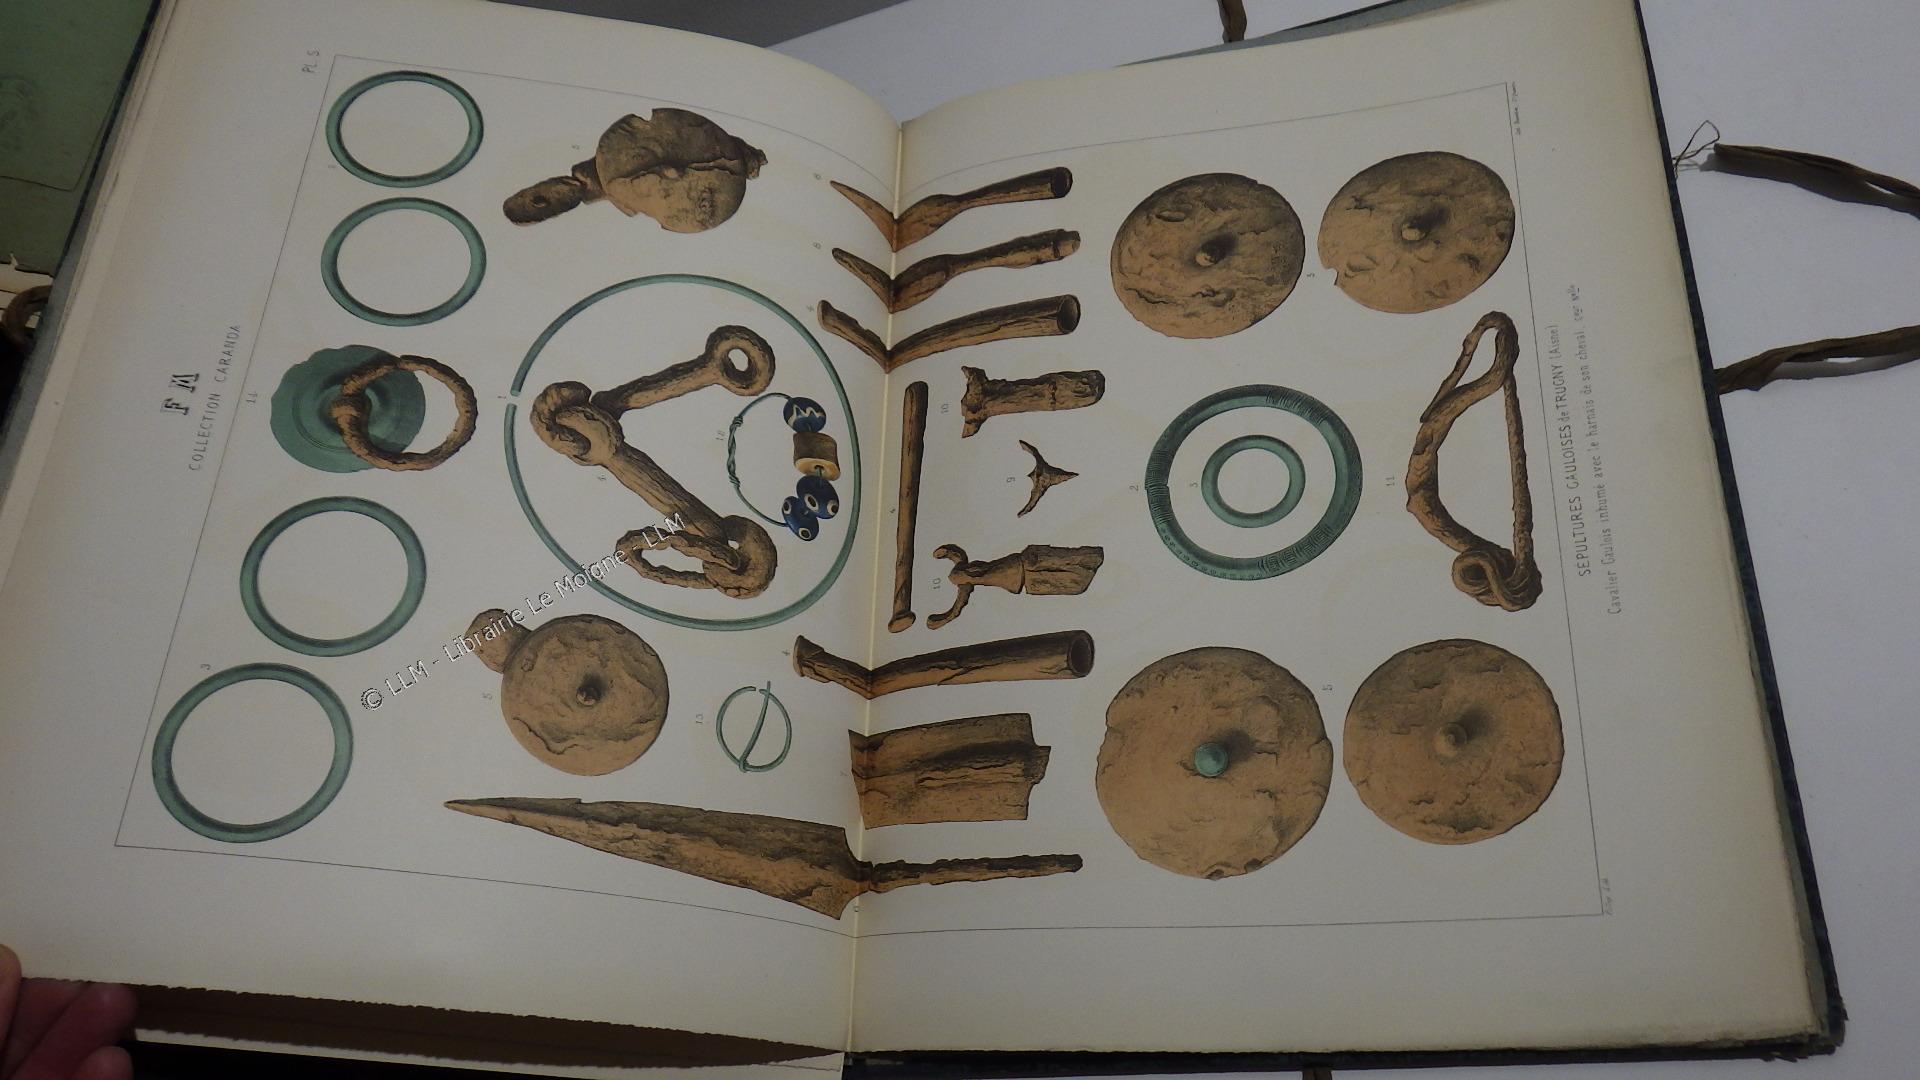 F M
COLLECTION CARANDA
PL. S.
SÉPULTURES GAULOISES de TRUGNY (Aisne)
Cavalier Gaulois inhumé avec le harnais de son cheval.
© LLM - Librairie Le Moigne - LLM
14
5
6
8
4
1
4
12
10
9
4
10
2
3
11
5
3
5
13
4
5